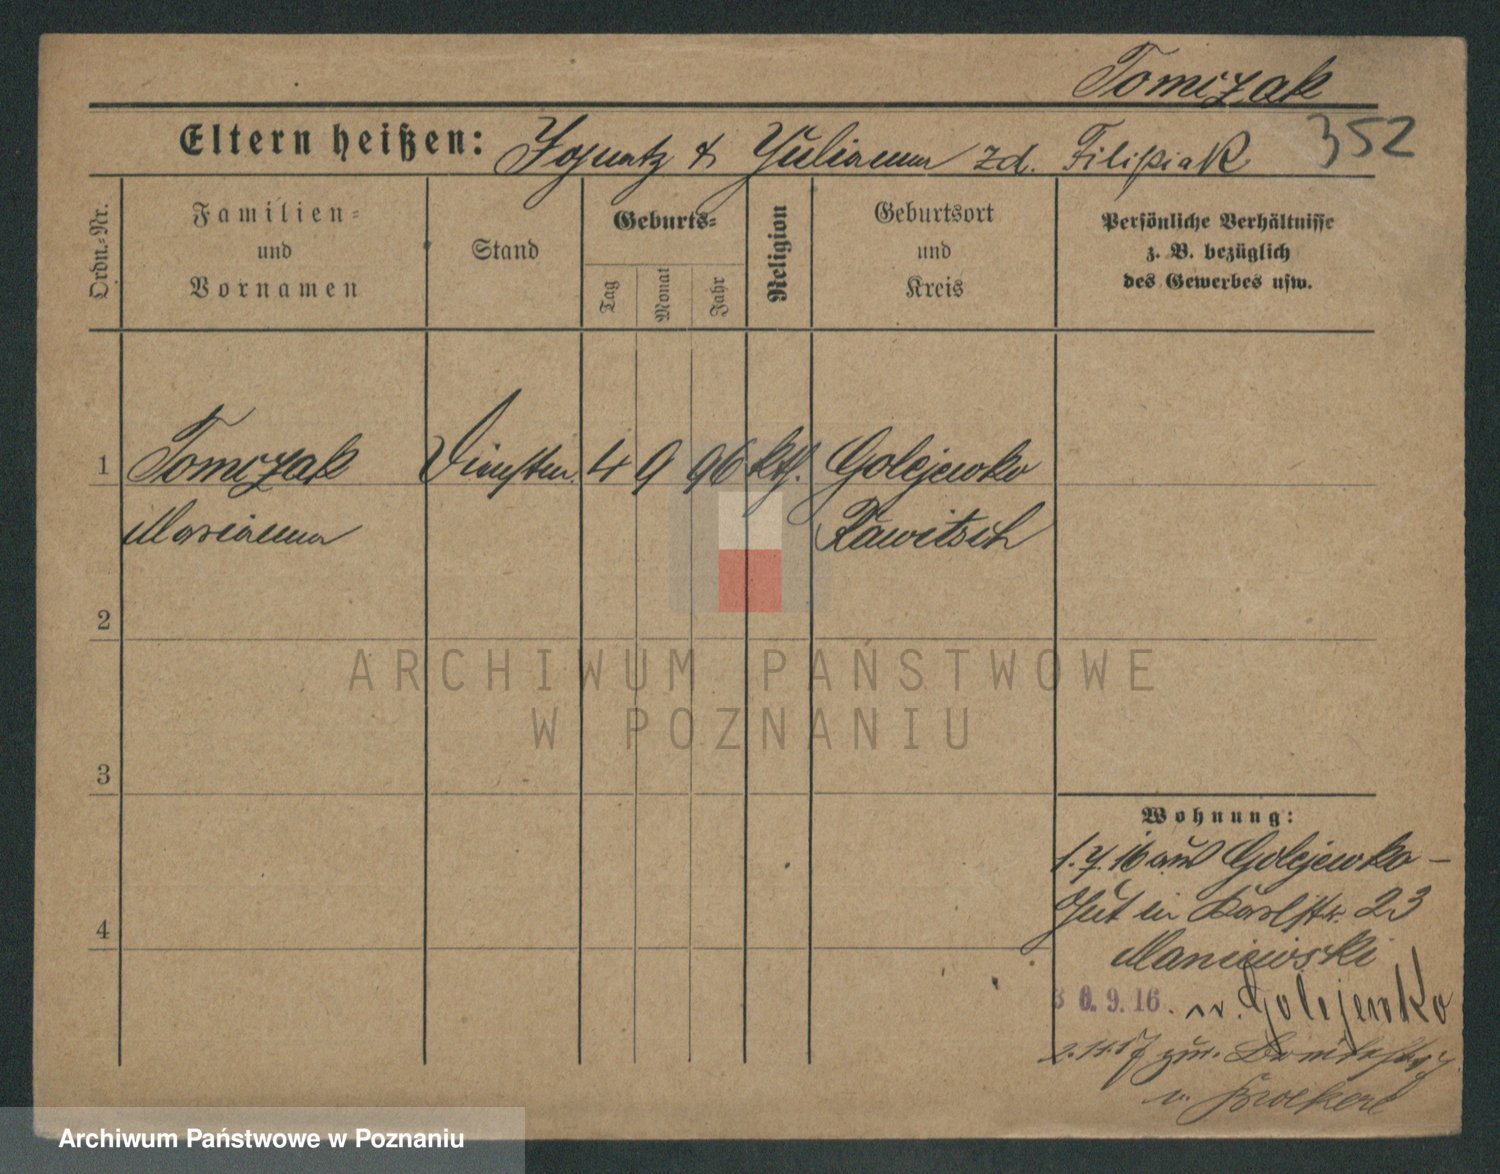 Tomczak
352
Eltern heißen: Ignatz & Julianna zd. Filipiak
Ordn.-Nr.
Familien-
und
Vornamen
Stand
Geburts-
Tag
Monat
Jahr
Religion
Geburtsort
und
Kreis
Persönliche Verhältnisse
z. B. bezüglich
des Gewerbes usw.
1 Tomczak 4 9 96 kth. Golejewko
Marianna Rawitsch
2
3
4
Wohnung:
1.7.16 aus Golejewko-
Gut in Karlstr. 23
Maniewski
30.9.16. n. Golejewko
zur.
v.
ARCHIWUM PAŃSTWOWE
W POZNANIU
Archiwum Państwowe w Poznaniu